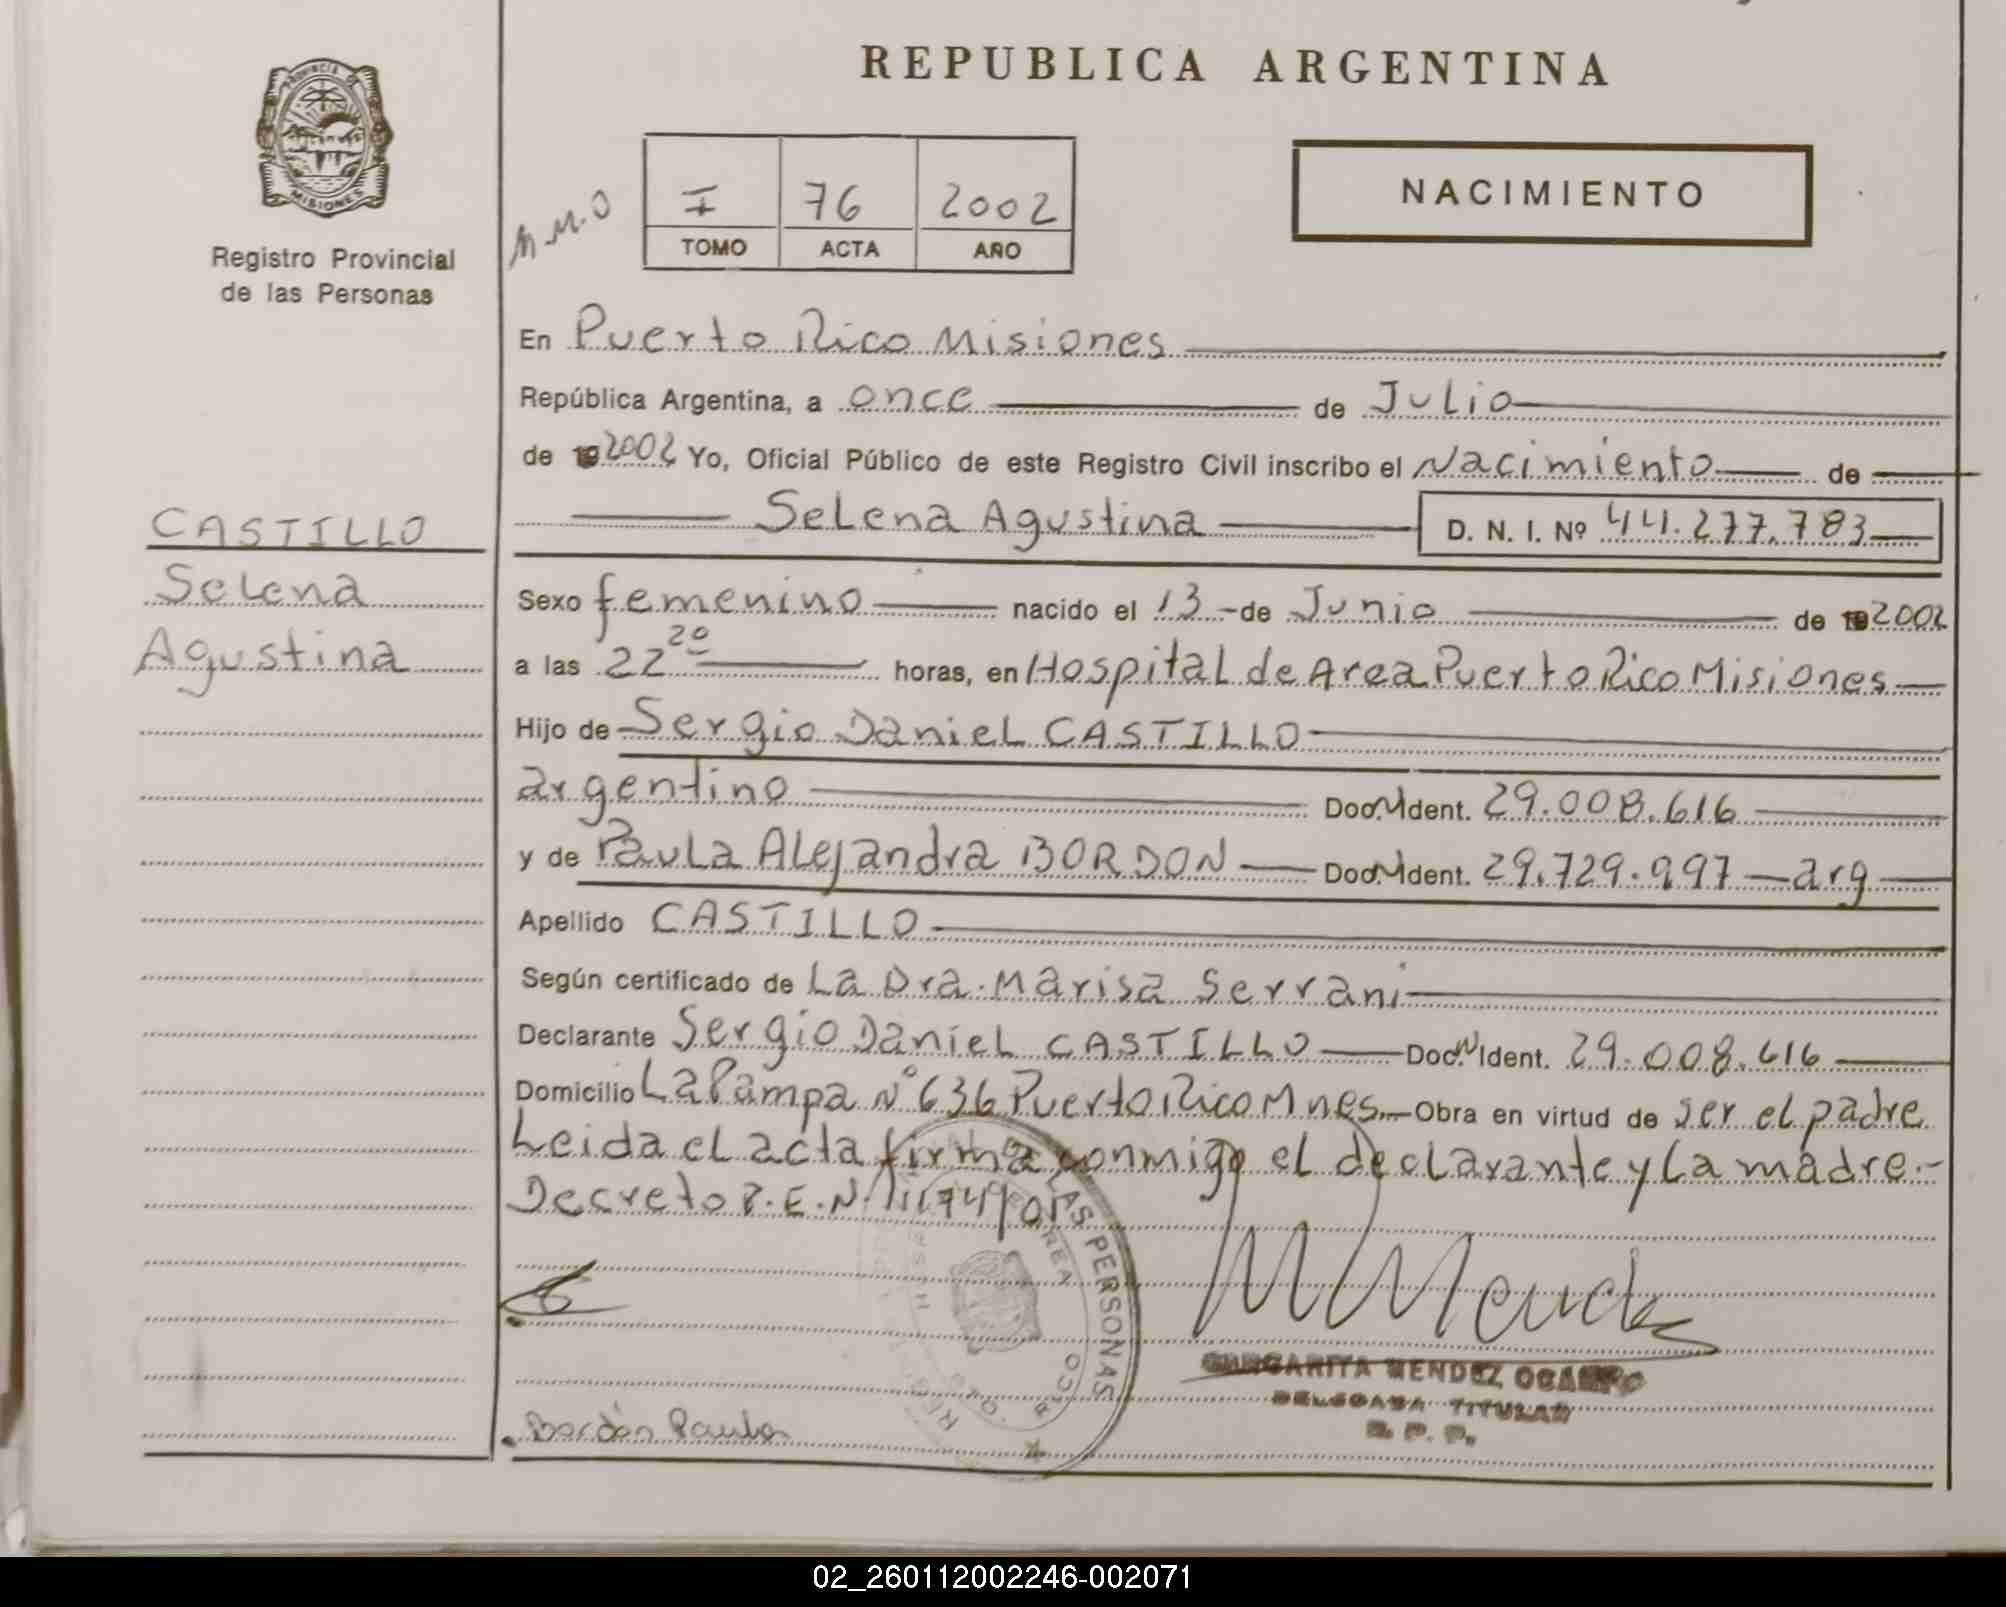 REPUBLICA ARGENTINA
PROVINCIA DE
MISIONES
Registro Provincial
de las Personas
I 76 2002
TOMO ACTA AÑO
NACIMIENTO
En Puerto Rico Misiones
República Argentina, a once de Julio
de 19 2002 Yo, Oficial Público de este Registro Civil inscribo el Nacimiento de
Selena Agustina D. N. I. Nº 44.277.783
CASTILLO
Selena
Agustina
Sexo femenino nacido el 13 de Junio de 19 2002
a las 22 20 horas, en Hospital de Area Puerto Rico Misiones
Hijo de Sergio Daniel CASTILLO
argentino Doc. N Ident. 29.008.616
y de Paula Alejandra BORDON Doc. N Ident. 29.729.997 arg
Apellido CASTILLO
Según certificado de La Dra. Marisa Serrani
Declarante Sergio Daniel CASTILLO Doc. N Ident. 29.008.616
Domicilio La Pampa Nº 636 Puerto Rico Mnes. Obra en virtud de ser el padre
Leida el acta firma conmigo el declarante y la madre.-
Decreto P.E.N.
LAS PERSONAS
Bordón Paula
MARGARITA MENDEZ OCAMPO
DELEGADA TITULAR
R. P. P.
02_260112002246-002071